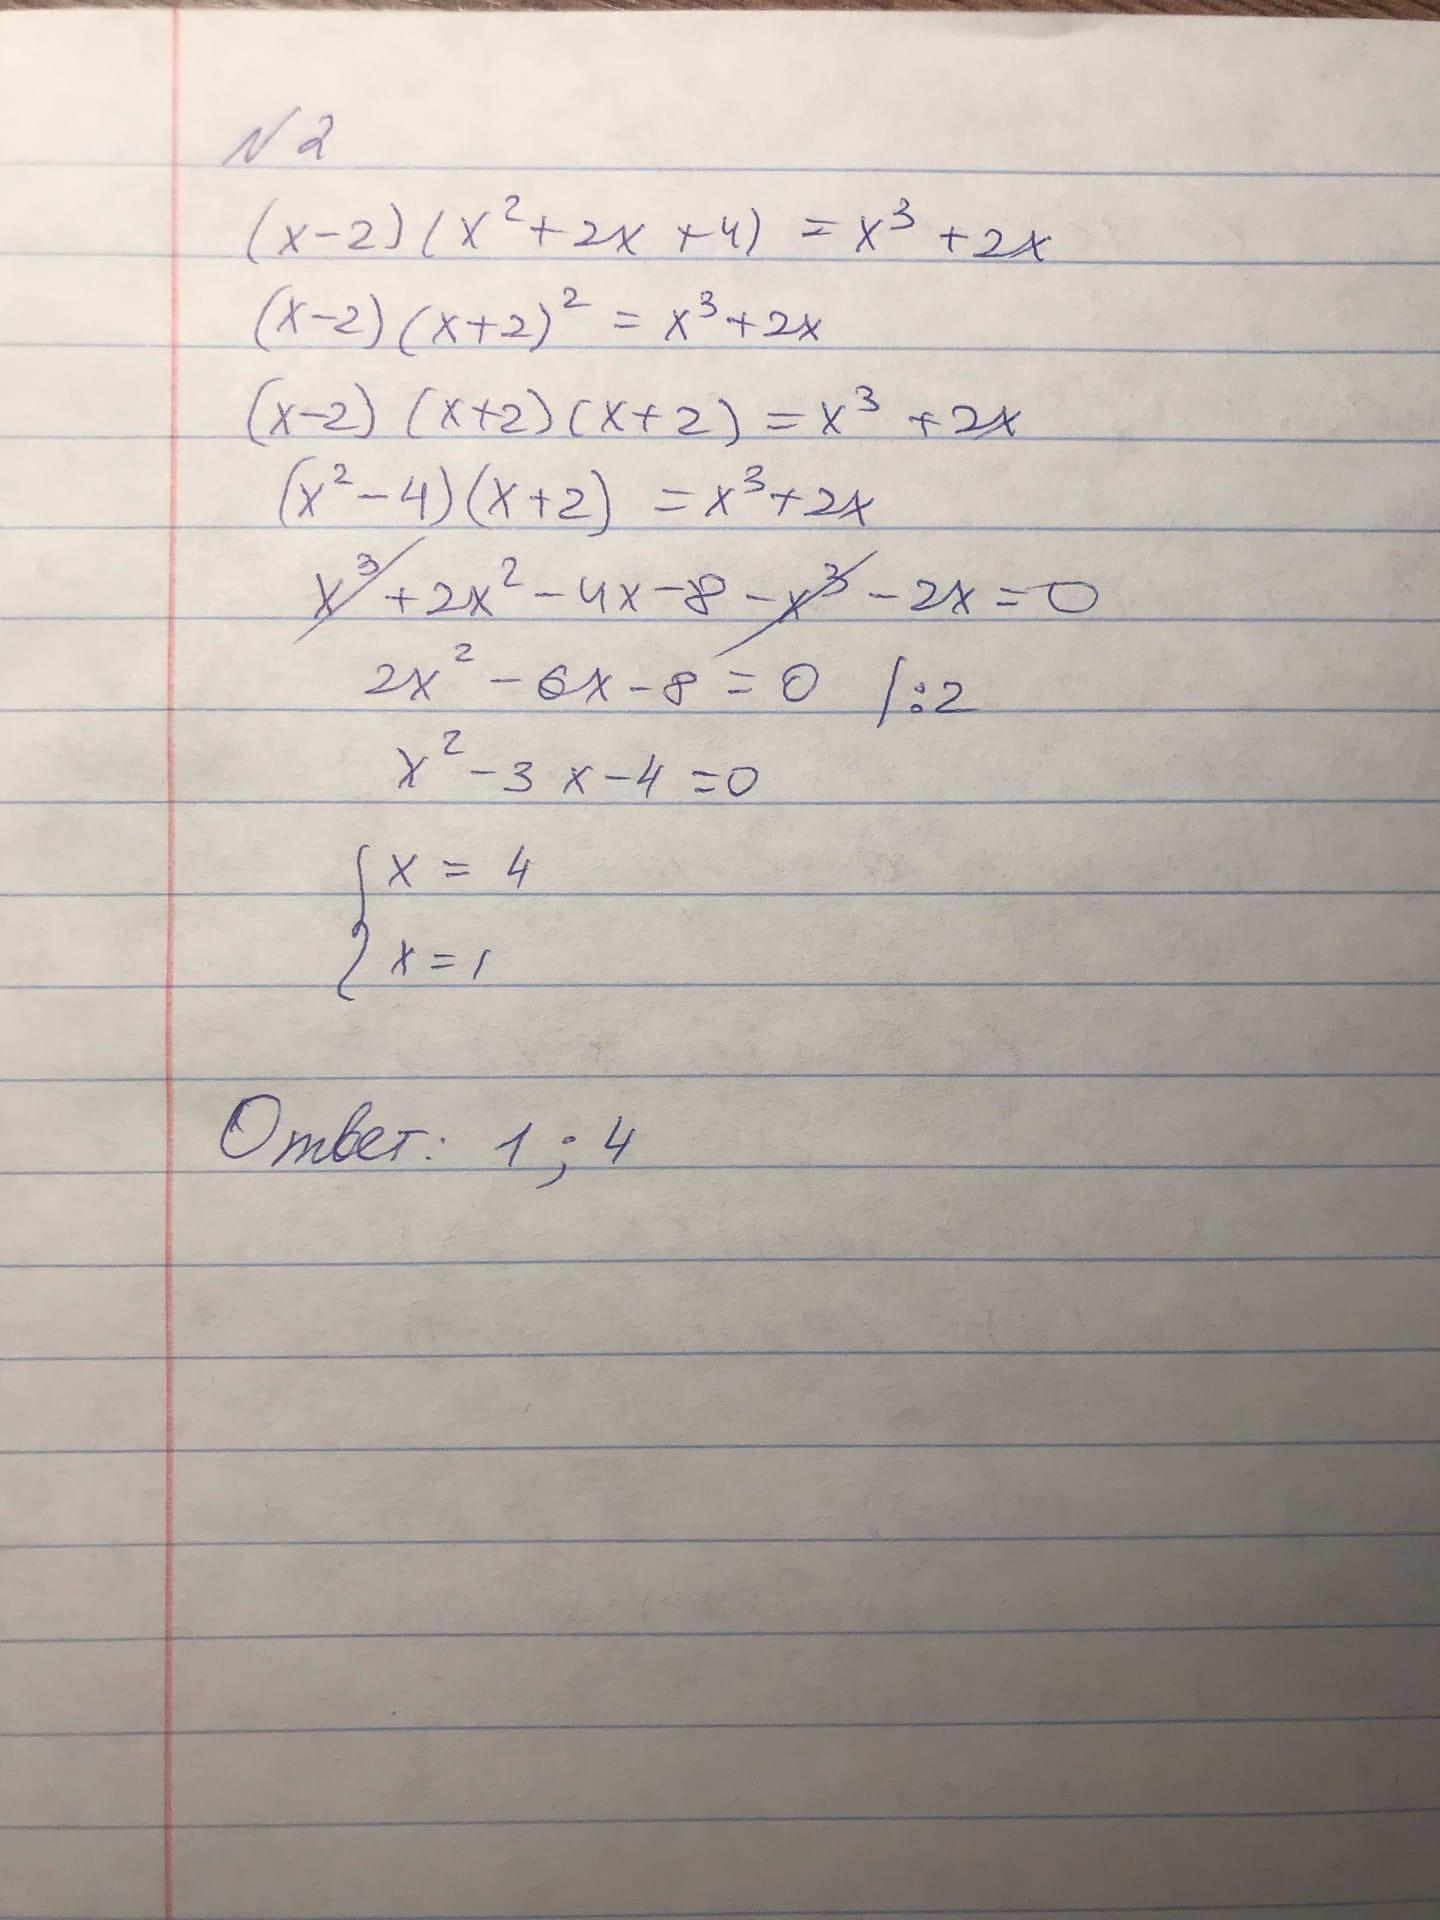 N 2
(x-2)(x²+2x+4) = x³+2x
(x-2)(x+2)² = x³+2x
(x-2)(x+2)(x+2) = x³+2x
(x²-4)(x+2) = x³+2x
x³+2x²-4x-8-x³-2x=0
2x²-6x-8=0 /:2
x²-3x-4=0
{ x = 4
x = 1
Ответ: 1; 4